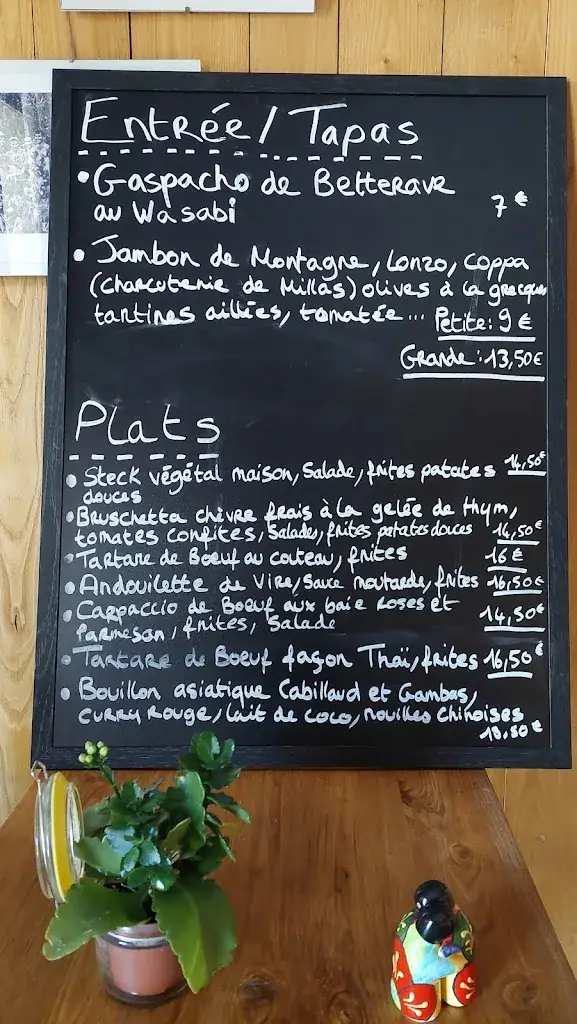 Entrée / Tapas
• Gaspacho de Betterave
au Wasabi
7 €
• Jambon de Montagne, Lonzo, Coppa
(Charcuterie de Millas) olives à la grecque
tartines aillées, tomatée... Petite : 9 €
Grande : 13,50€
Plats
• Steck végétal maison, Salade, frites patates 14,50€
douces
• Bruschetta chèvre frais à la gelée de thym,
tomates confites, Salade, frites patates douces 14,50€
• Tartare de Boeuf au couteau, frites 16 €
• Andouillette de Vire, Sauce moutarde, frites 16,50€
• Carpaccio de Boeuf aux baie roses et
Parmesan, frites, Salade 14,50€
• Tartare de Boeuf façon Thaï, frites 16,50€
• Bouillon asiatique Cabillaud et Gambas,
curry rouge, lait de coco, nouilles chinoises
18,50€